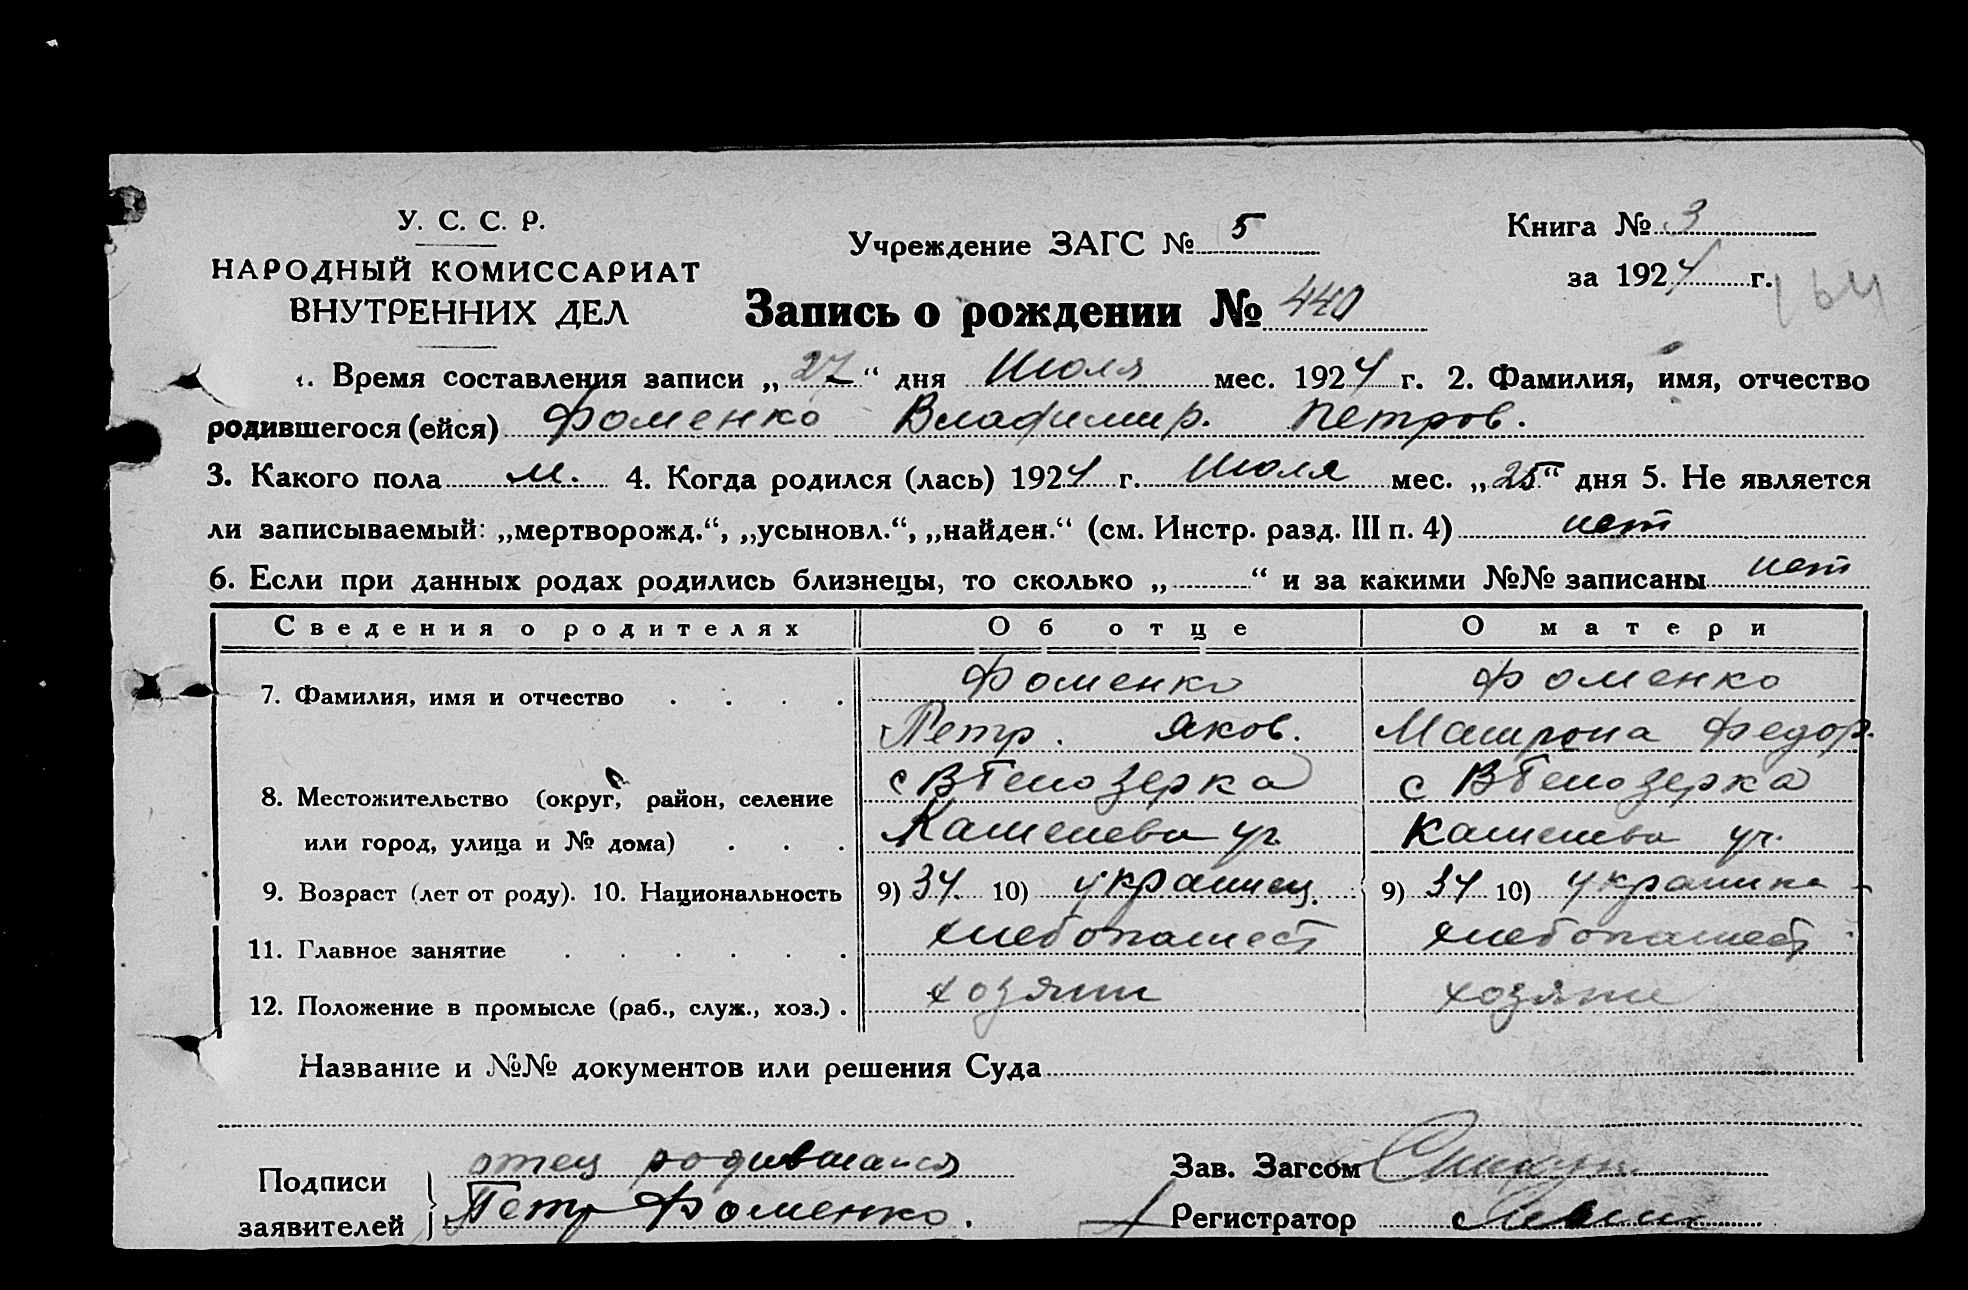 У. С. С. Р.
НАРОДНЫЙ КОМИССАРИАТ
ВНУТРЕННИХ ДЕЛ
Учреждение ЗАГС № 5
Книга № 3
за 1924 г.
164
Запись о рождении № 440
1. Время составления записи „27“ дня Июля мес. 1924 г. 2. Фамилия, имя, отчество
родившегося (ейся) Фоменко Владимир. Петров.
3. Какого пола м. 4. Когда родился (лась) 1924 г. Июля мес. „25“ дня 5. Не является
ли записываемый: „мертворожд.“, „усыновл.“, „найден.“ (см. Инстр. разд. III п. 4) нет
6. Если при данных родах родились близнецы, то сколько „ “ и за какими №№ записаны нет
Сведения о родителях Об отце О матери
7. Фамилия, имя и отчество Фоменко Фоменко
Петр. Яков. Матрона Федор.
8. Местожительство (округ, район, селение с ВБелозерка с ВБелозерка
или город, улица и № дома)
9. Возраст (лет от роду). 10. Национальность 9) 34 10) украинец. 9) 34 10) украинка
11. Главное занятие хлебопашест хлебопашест
12. Положение в промысле (раб., служ., хоз.) хозяин
Название и №№ документов или решения Суда
Подписи
заявителей
отец родившаися
Петр Фоменко.
Зав. Загсом
Регистратор